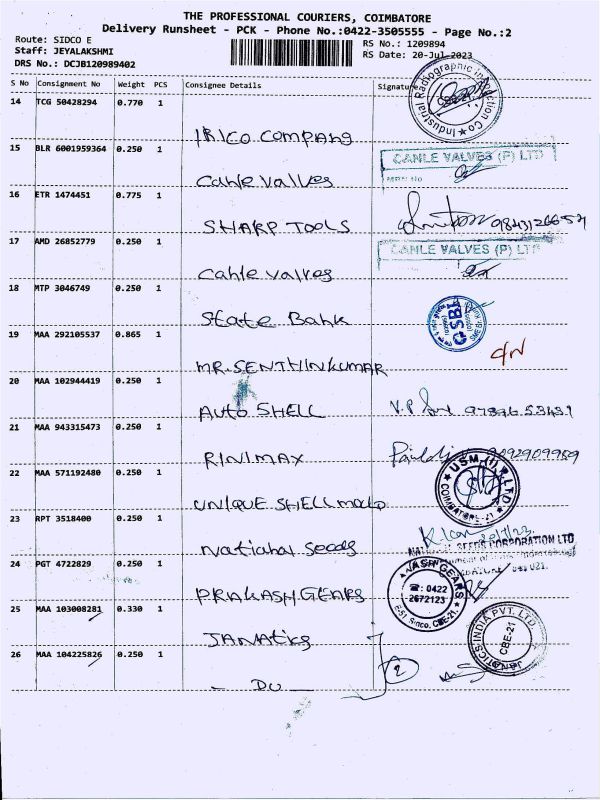 THE PROFESSIONAL COURIERS, COIMBATORE
Delivery Runsheet - PCK - Phone No.:0422-3505555 - Page No.:2
Route: SIDCO E
Staff: JEYALAKSHMI
DRS No.: DCJB120989402
RS No.: 1209894
RS Date: 20-Jul-2023
S No Consignment No Weight PCS Consignee Details Signature
14 TCG 50428294 0.770 1
Industrial Radiographic Inspection Co
IRICO COMPANG
15 BLR 6001959364 0.250 1
CANLE VALVES (P) LTD
Cahle Valves
16 ETR 1474451 0.775 1
SHARP TOOLS
17 AMD 26852779 0.250 1
CANLE VALVES (P) LTD
Cahle Valves
18 MTP 3046749 0.250 1
State Bank
SBI
19 MAA 292105537 0.865 1
MR. SENTHINKUMAR
20 MAA 102944419 0.250 1
Auto SHELL
21 MAA 943315473 0.250 1
RINIMAX
22 MAA 571192480 0.250 1
USM (I) P. LTD COIMBATORE - 21
UNIQUE SHELL mold
23 RPT 3518400 0.250 1
National Seeds
NATIONAL SEEDS CORPORATION LTD
24 PGT 4722829 0.250 1
PRAKASH GEARS
NASH GEARS
☎: 0422
2672123
E-51, Sidco, CBE-21.
25 MAA 103008281 0.330 1
JANATICS
JANATICS INDIA PVT. LTD
CBE-21
26 MAA 104225826 0.250 1
2
- DU -